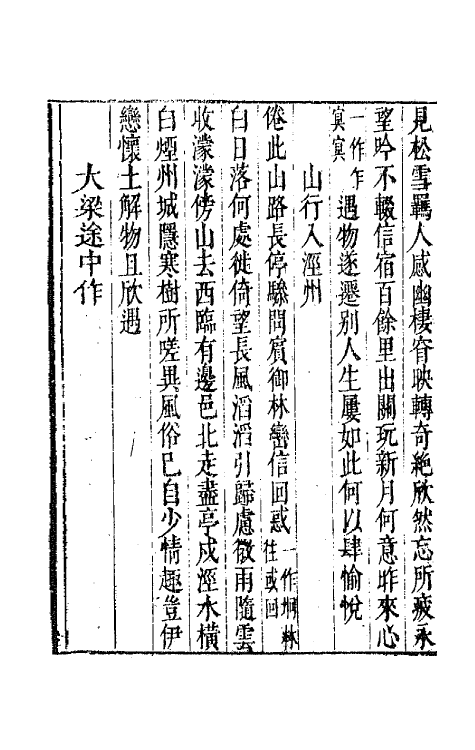 見松雪羈人感幽棲窅映轉奇絶欣然忘所疲永
望吟不輟信宿百餘里出關玩新月何意昨來心
一作作冥冥遇物遂遷別人生屢如此何以肆愉悅
山行入涇州
倦此山路長停驂問賓御林巒信回惑一作坰林往或回
白日落何處徙倚望長風滔滔引歸慮微雨隨雲
收濛濛傍山去西臨有邊邑北走盡亭戍涇水橫
白煙州城隱寒樹所嗟異風俗已自少情趣豈伊
戀懷土解物且欣遇
大梁途中作